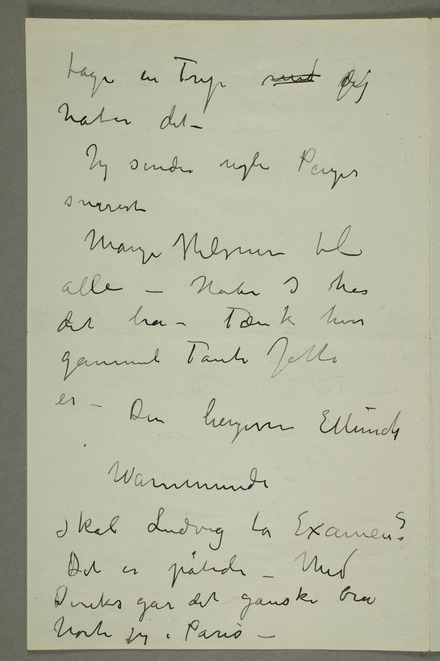 tage en Trip ned Jeg
håber det –
Jeg sender nogle Penger
snarest
Mange Hilsener til
alle – Håber I har
det bra – Tænk hvor
gammel Tante Jette
er –
Din hengivne EMunch
Warnemünde
skal Ludvig ta Examen?
Det er påtide – Med
gar det ganske bra
hørte jeg i Paris –